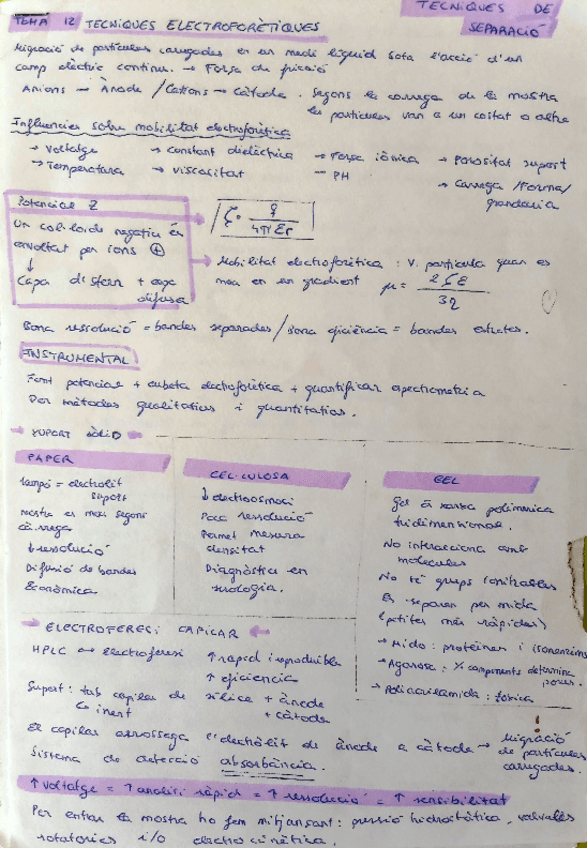 TECNIQUES DE
SEPARACIÓ
TEMA 12 TECNIQUES ELECTROFORÈTIQUES
Migració de partícules carregades en un medi líquid sota l'acció d'un
camp elèctric continu. → Força de fricció
Anions → Ànode / Cations → Càtode. Segons la carrega de la mostra
les partícules van a un costat o altre
Influencies sobre mobilitat electroforètica
→ Voltatge → Constant dielèctrica → Força iònica → Porositat suport
→ Temperatura → Viscositat → PH → Carrega / Forma /
grandaria
Potencial Z
Un col·loide negatiu és
envoltat per ions ⊕
↓
Capa d'stern + capa
difusa
ζ · q / 4πεr
→ Mobilitat electroforètica : V. partícula quan es
mou en un gradient μ = 2ζε / 3η
Bona ressolució = bandes separades / Bona eficiència = bandes estretes.
INSTRUMENTAL
Font potencial + cubeta electroforètica + quantificar espectrometria
Per mètodes qualitatius i quantitatius.
→ SUPORT SÒLID ←
PAPER
tampó = electròlit
suport
mostra es mou segons
càrrega
↓ressolució
Difusió de bandes
Econòmica
CEL·LULOSA
↓ electroosmosi
Poca ressolució
Permet mesura
densitat
Diagnòstic en
serologia.
GEL
Gel és xarxa polimèrica
tridimensional.
No interacciona amb
molecules
No té grups ionitzables
Es separen per mida
(petites més ràpides)
→ Mido : proteïnes i isoenzims
→ Agarosa : % components determina
porus.
→ Poliacrilamida : tòxica
→ ELECTROFERESI CAPILAR ←
HPLC ↔ electroferesi ↑ rapid i reproduïble
↑ eficiencia
Suport : tub capilar de sílice + ànode
↳ inert + càtode
El capilar arrossega l'electròlit de ànode a càtode → Migració
de partícules
carregades.
Sistema de detecció absorbància.
↑ Voltatge = ↑ anàlisi ràpid = ↑ ressolució = ↑ sensibilitat
Per entrar la mostra ho fem mitjançant : pressió hidrostàtica, valvules
rotatories i/o electrocinètica.